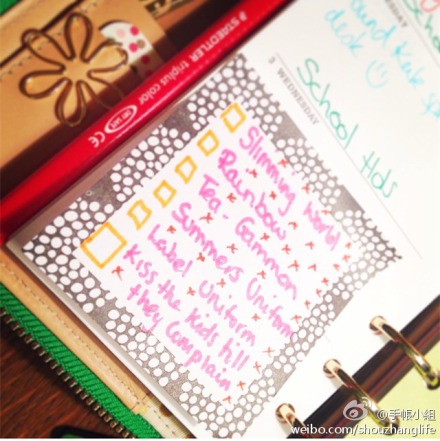 Slimming world
Rainbow
Tea - Gammon
Summers Uniform
Label uniform
Kiss the kids till
they complain
STAEDTLER triplus color
CE
3 WEDNESDAY
School Hols
desk
@手帐小组
weibo.com/shouzhanglife